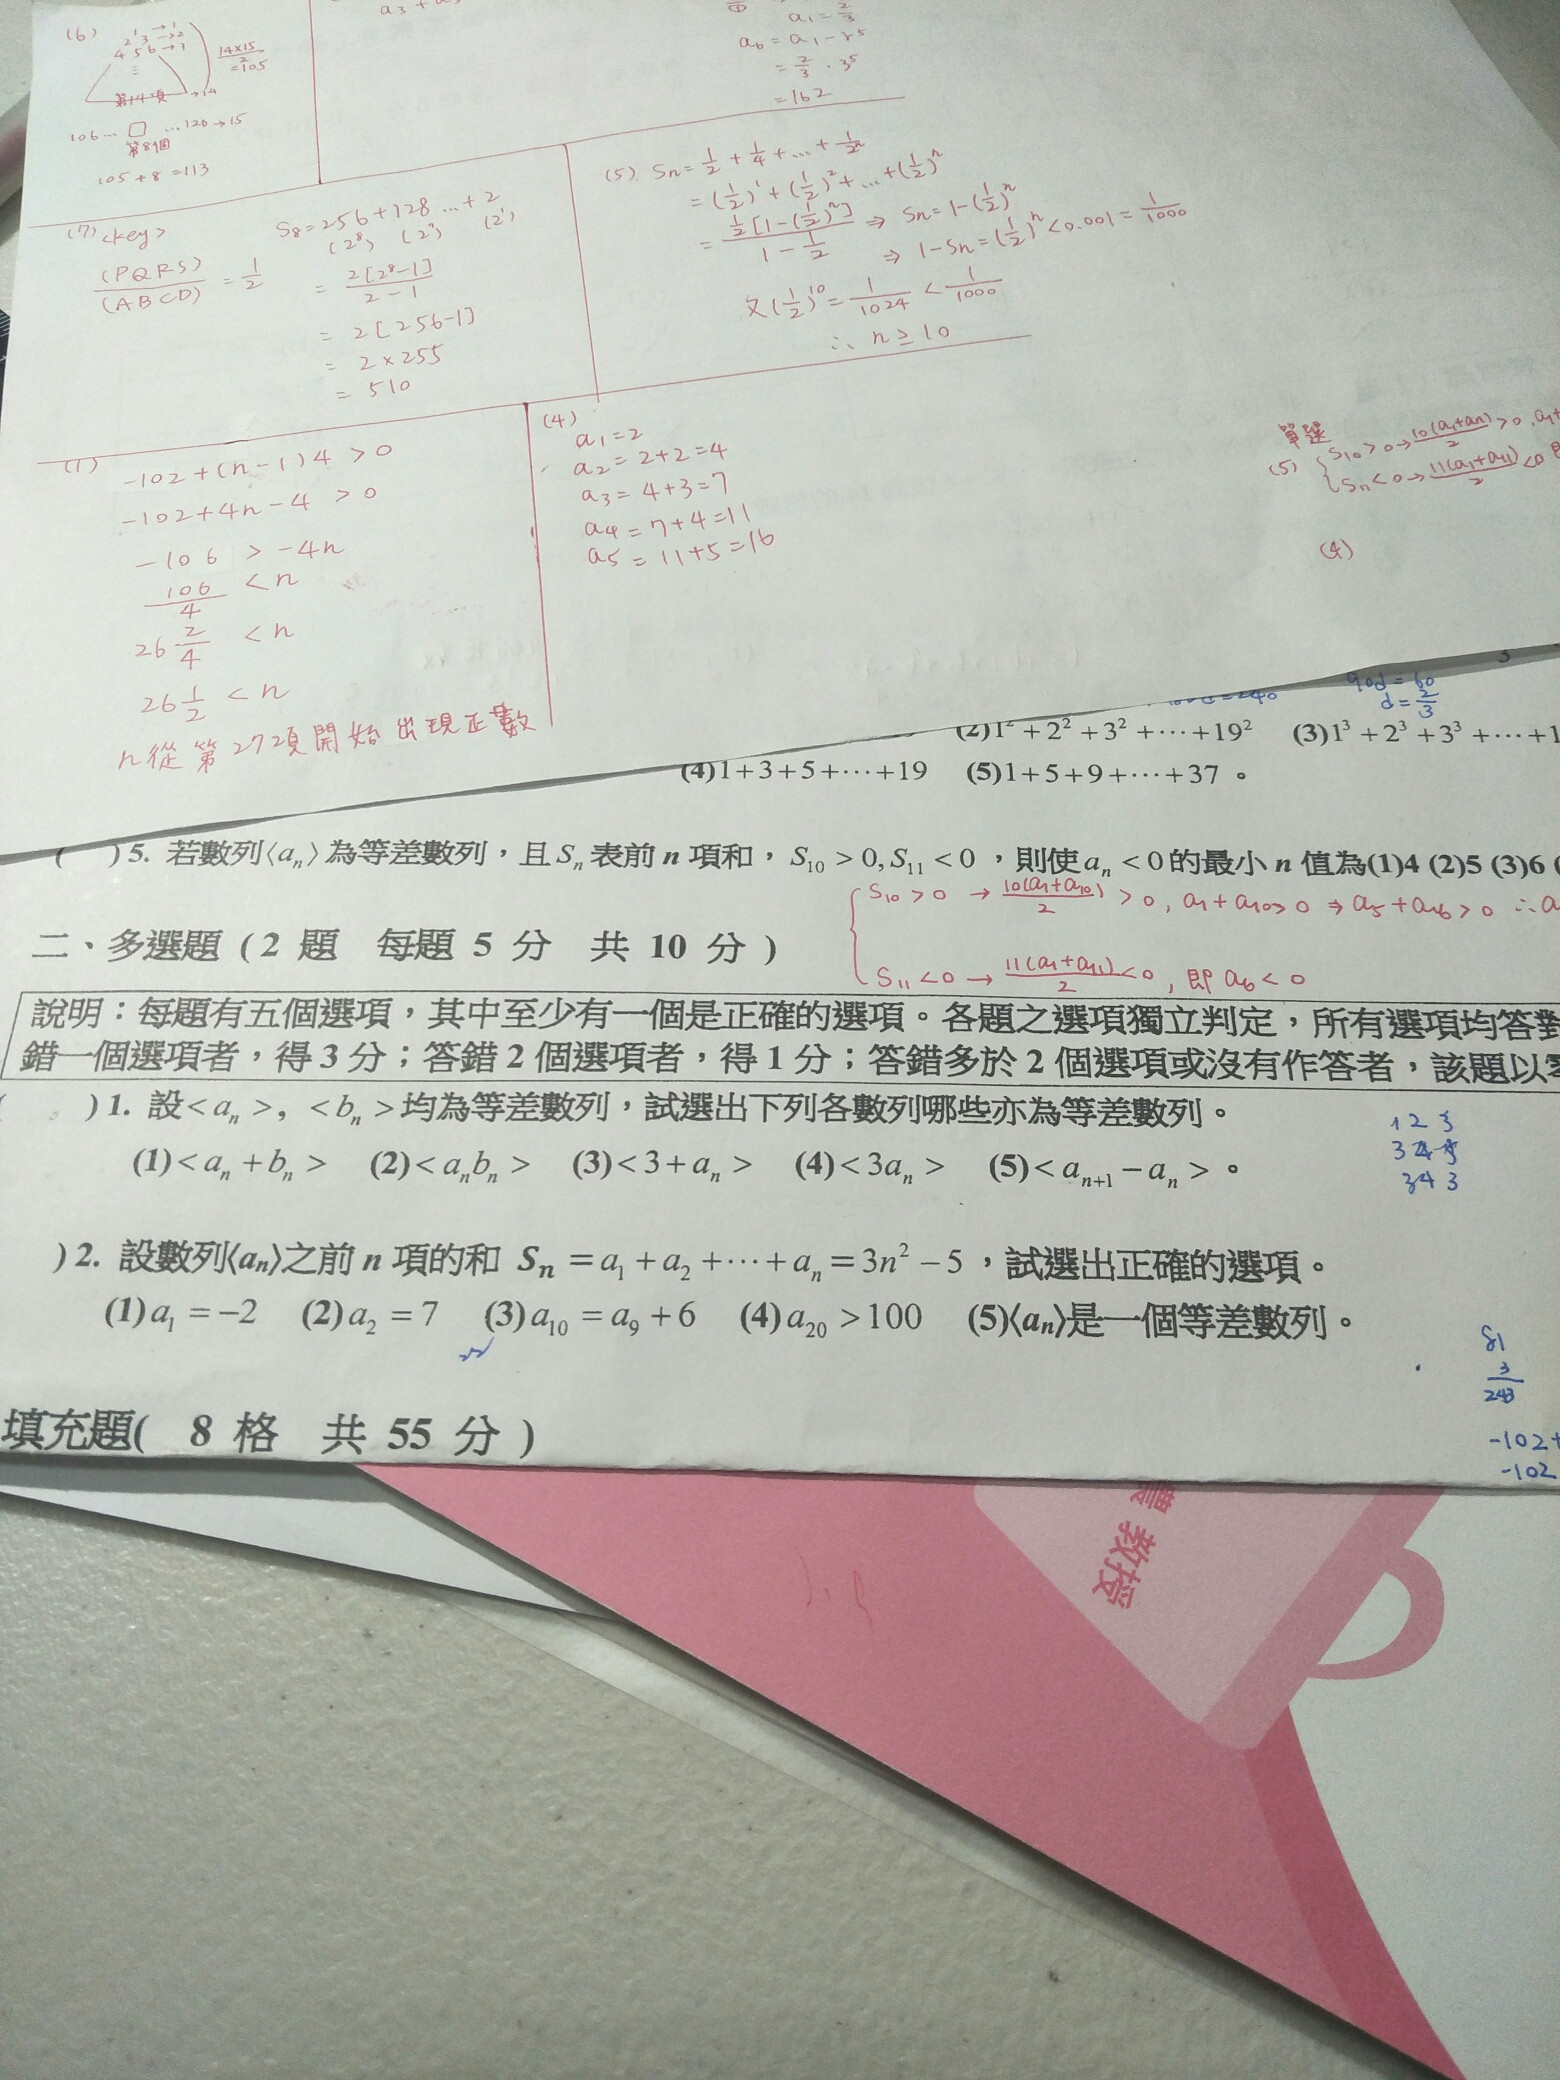 (6)
1 → 1
2 3 → 2
4 5 6 → 3
⋮
第14項 → 14
14×15/2
=105
106… □ …120 → 15
第8個
105+8=113
a₁=2/3
a₆=a₁-r⁵
=2/3·3⁵
=162
(7) <key>
(PQRS)/(ABCD) = 1/2
S₈=256+128…+2
(2⁸) (2⁷) (2¹)
= 2[2⁸-1]/2-1
= 2[256-1]
= 2×255
= 510
(5) Sn=1/2+1/4+…+1/2ⁿ
=(1/2)¹+(1/2)²+…+(1/2)ⁿ
= 1/2[1-(1/2)ⁿ]/1-1/2 ⇒ Sn=1-(1/2)ⁿ
⇒ 1-Sn=(1/2)ⁿ<0.001=1/1000
又(1/2)¹⁰=1/1024<1/1000
∴ n≥10
(1) -102+(n-1)4>0
-102+4n-4>0
-106>-4n
106/4<n
26 2/4<n
26 1/2<n
n從第27項開始出現正數
(4)
a₁=2
a₂=2+2=4
a₃=4+3=7
a₄=7+4=11
a₅=11+5=16
單選
(5) S₁₀>0→10(a₁+an)/2>0, a₁+
S₁₁<0→11(a₁+a₁₁)/2<0 即
(4)
90d=60
d=2/3
(2)1²+2²+3²+⋯+19² (3)1³+2³+3³+⋯+1
(4)1+3+5+⋯+19 (5)1+5+9+⋯+37。
( )5. 若數列⟨aₙ⟩為等差數列，且Sₙ表前n項和，S₁₀>0,S₁₁<0，則使aₙ<0的最小n值為(1)4 (2)5 (3)6 (
S₁₀>0 → 10(a₁+a₁₀)/2>0, a₁+a₁₀>0 ⇒ a₅+a₆>0 ∴a
S₁₁<0→ 11(a₁+a₁₁)/2<0, 即 a₆<0
二、多選題（2 題 每題 5 分 共 10 分）
說明：每題有五個選項，其中至少有一個是正確的選項。各題之選項獨立判定，所有選項均答對
錯一個選項者，得3分；答錯2個選項者，得1分；答錯多於2個選項或沒有作答者，該題以零
( )1. 設<aₙ>, <bₙ>均為等差數列，試選出下列各數列哪些亦為等差數列。
(1)<aₙ+bₙ> (2)<aₙbₙ> (3)<3+aₙ> (4)<3aₙ> (5)<aₙ₊₁-aₙ>。
1 2 3
3 4 5
3 4 3
)2. 設數列⟨aₙ⟩之前n項的和 Sₙ=a₁+a₂+⋯+aₙ=3n²-5，試選出正確的選項。
(1)a₁=-2 (2)a₂=7 (3)a₁₀=a₉+6 (4)a₂₀>100 (5)⟨aₙ⟩是一個等差數列。
22
81
3
243
-102+
-102
填充題( 8 格 共 55 分 )
農 教授